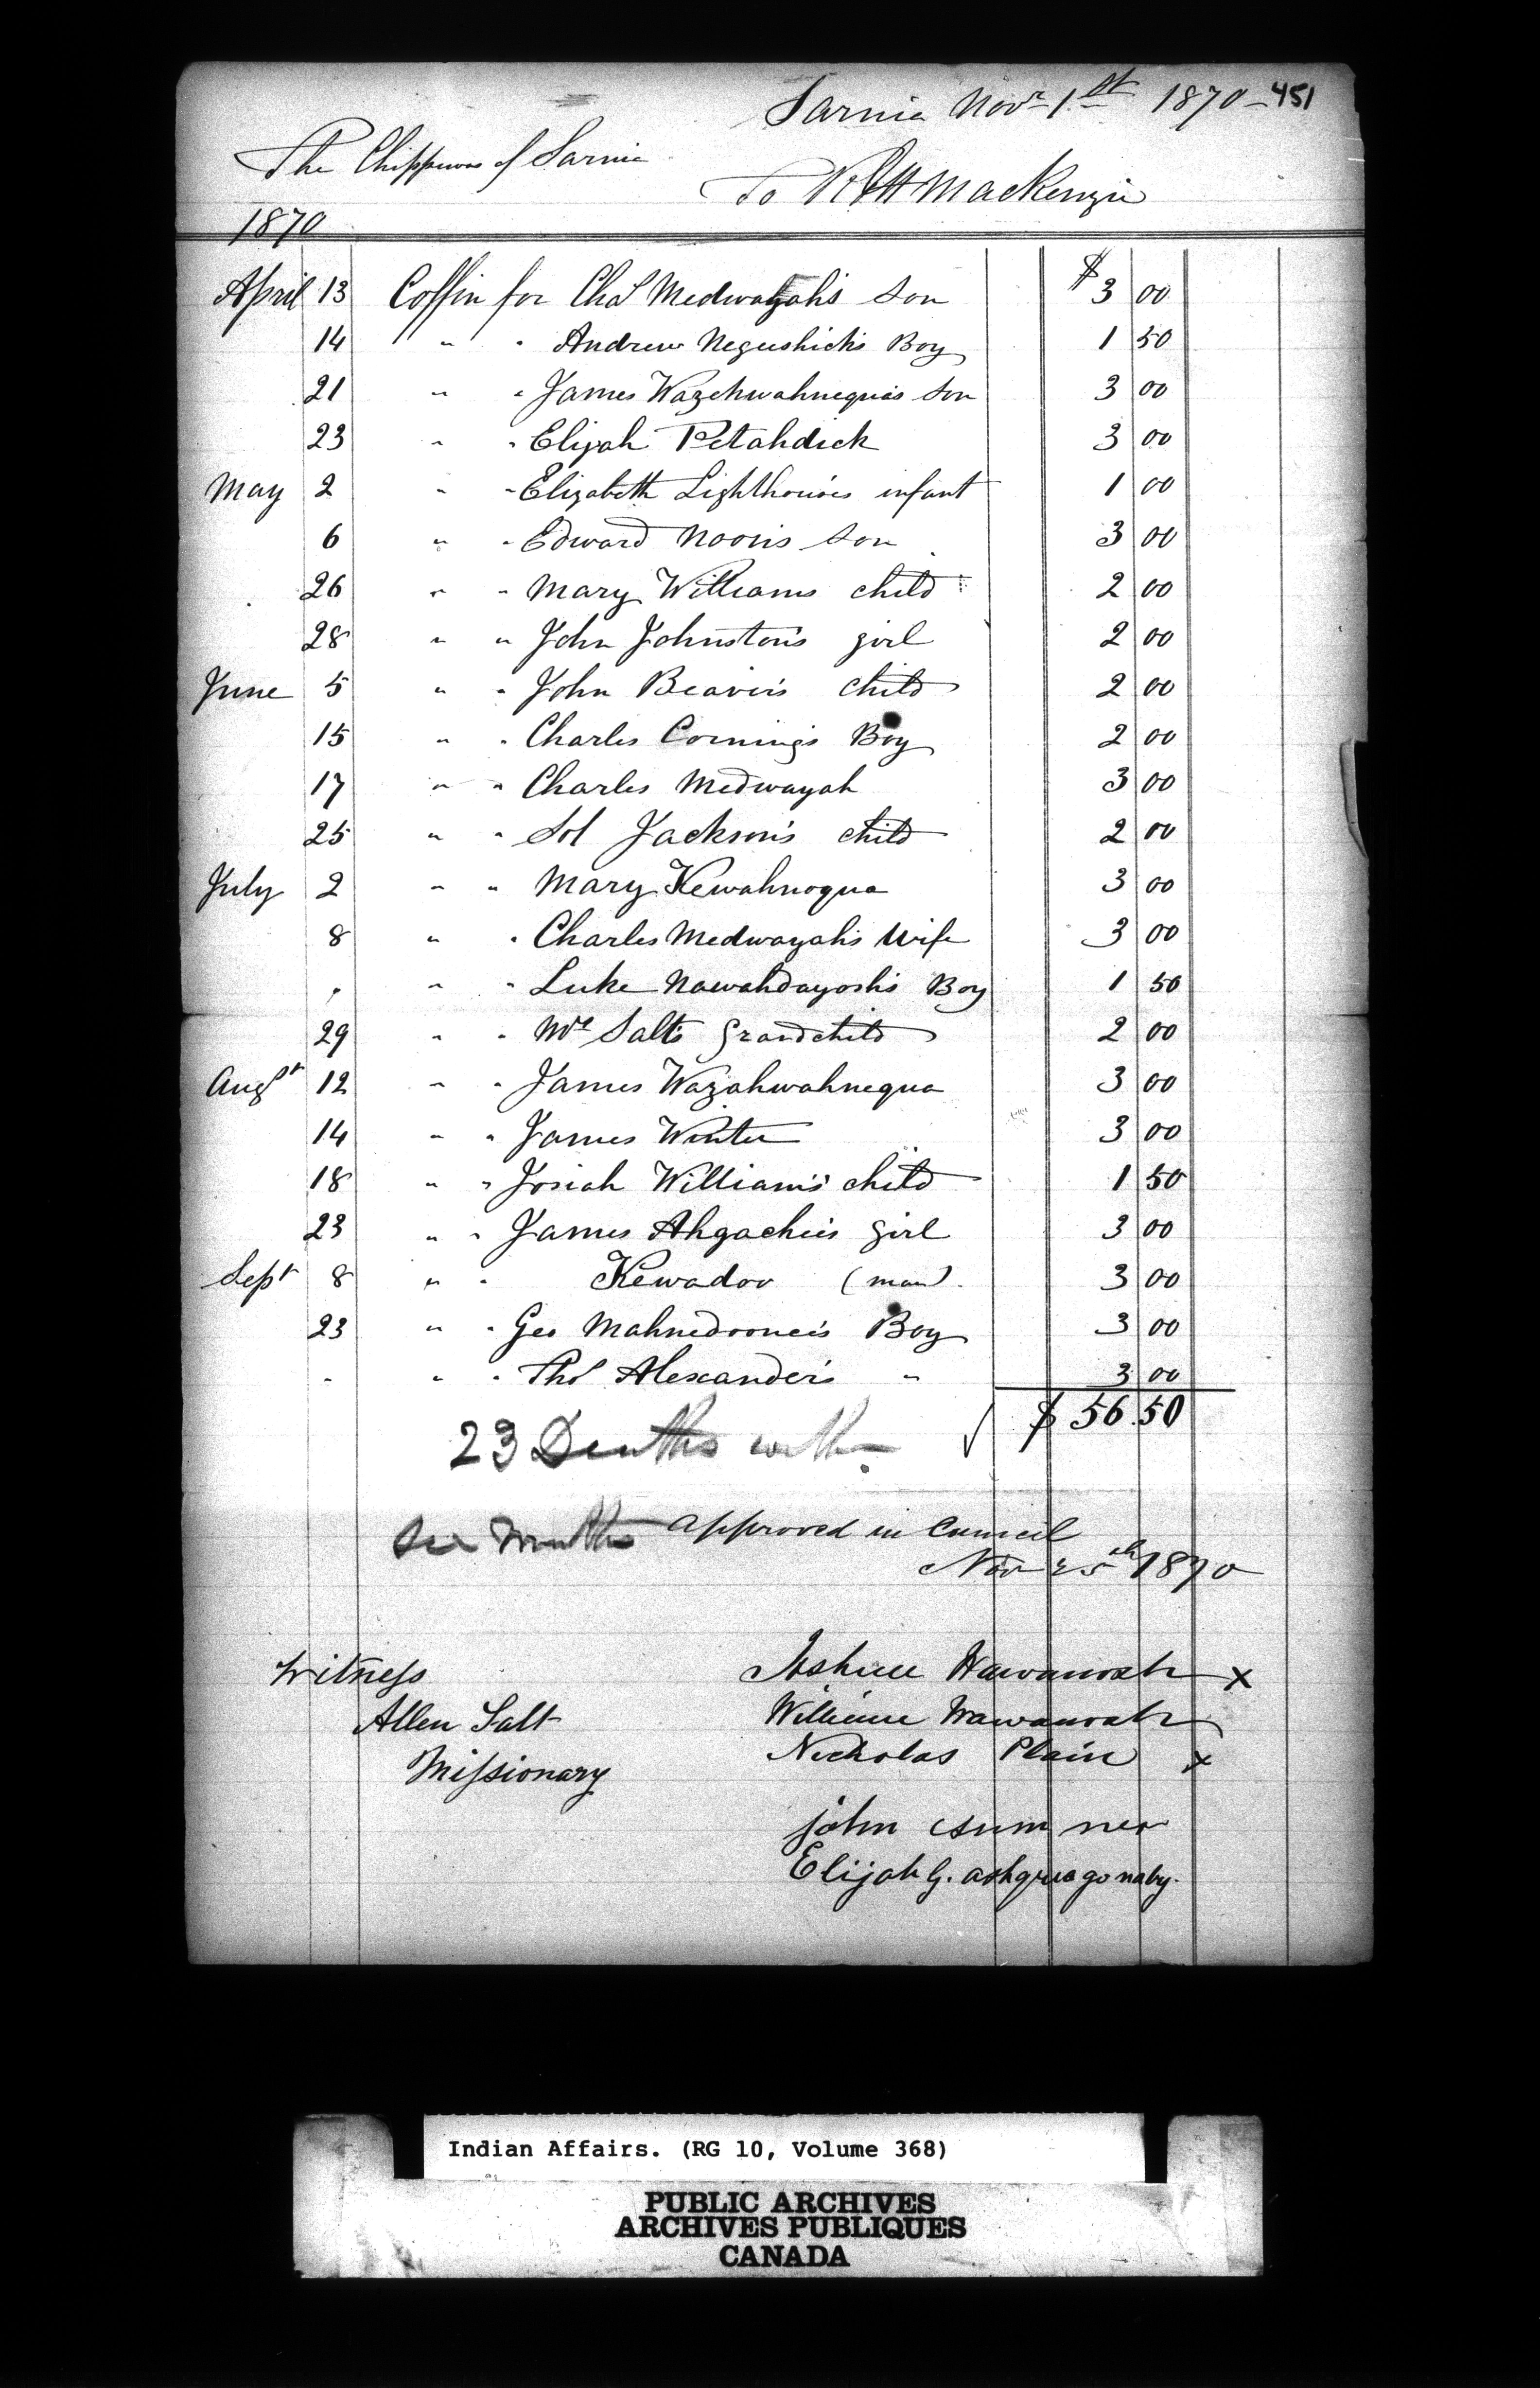 451
Sarnia Novr 1st 1870
The Chippewas of Sarnia
To Mackenzie
1870
April 13 Coffin for Chas Medwayah's son $3 00
14 " " Andrew Negushick's Boy 1 50
21 " " James Wazehwahnequa's son 3 00
23 " " Elijah Petahdick 3 00
May 2 " " Elizabeth Lighthouse's infant 1 00
6 " " Edward Noon's son 3 00
26 " " Mary Williams child 2 00
28 " " John Johnston's girl 2 00
June 5 " " John Beaver's child 2 00
15 " " Charles Corning's Boy 2 00
17 " " Charles Medwayah 3 00
25 " " Sol Jackson's child 2 00
July 2 " " Mary Kewahnoqua 3 00
8 " " Charles Medwayah's Wife 3 00
" " " Luke Nawahdayosh's Boy 1 50
29 " " Salt's Grandchild 2 00
Augst 12 " " James Wazahwahnequa 3 00
14 " " James Winter 3 00
18 " " Josiah William's child 1 50
23 " " James Ahgachie's girl 3 00
Sept 8 " " Kewadoo (man) 3 00
23 " " Geo Mahnedoonce's Boy 3 00
" " " Thos Alexander's " 3 00
$56.50
23 Deaths within
six months
approved in Council
Nov 25th 1870
Witness
Allen Salt
Missionary
Joshua Wawanosh x
William Wawanosh
Nicholas Plain x
john sumner
Elijah G. ashquagonaby.
Indian Affairs. (RG 10, Volume 368)
PUBLIC ARCHIVES
ARCHIVES PUBLIQUES
CANADA